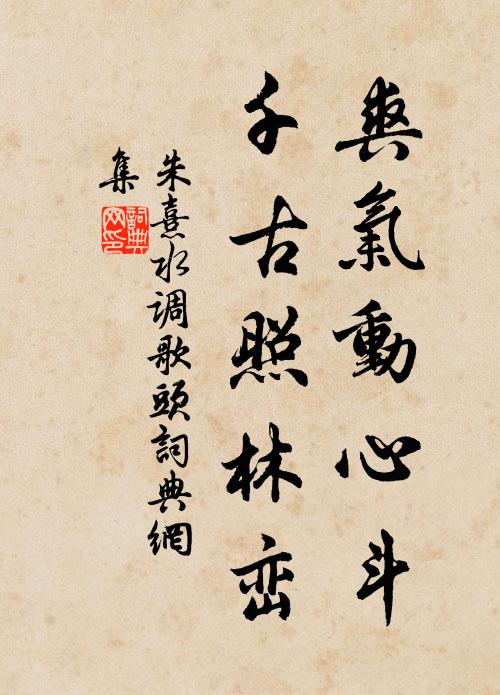 爽氣動心斗
千古照林峦
朱熹水调歌頭詞典網
集
詞典
网印